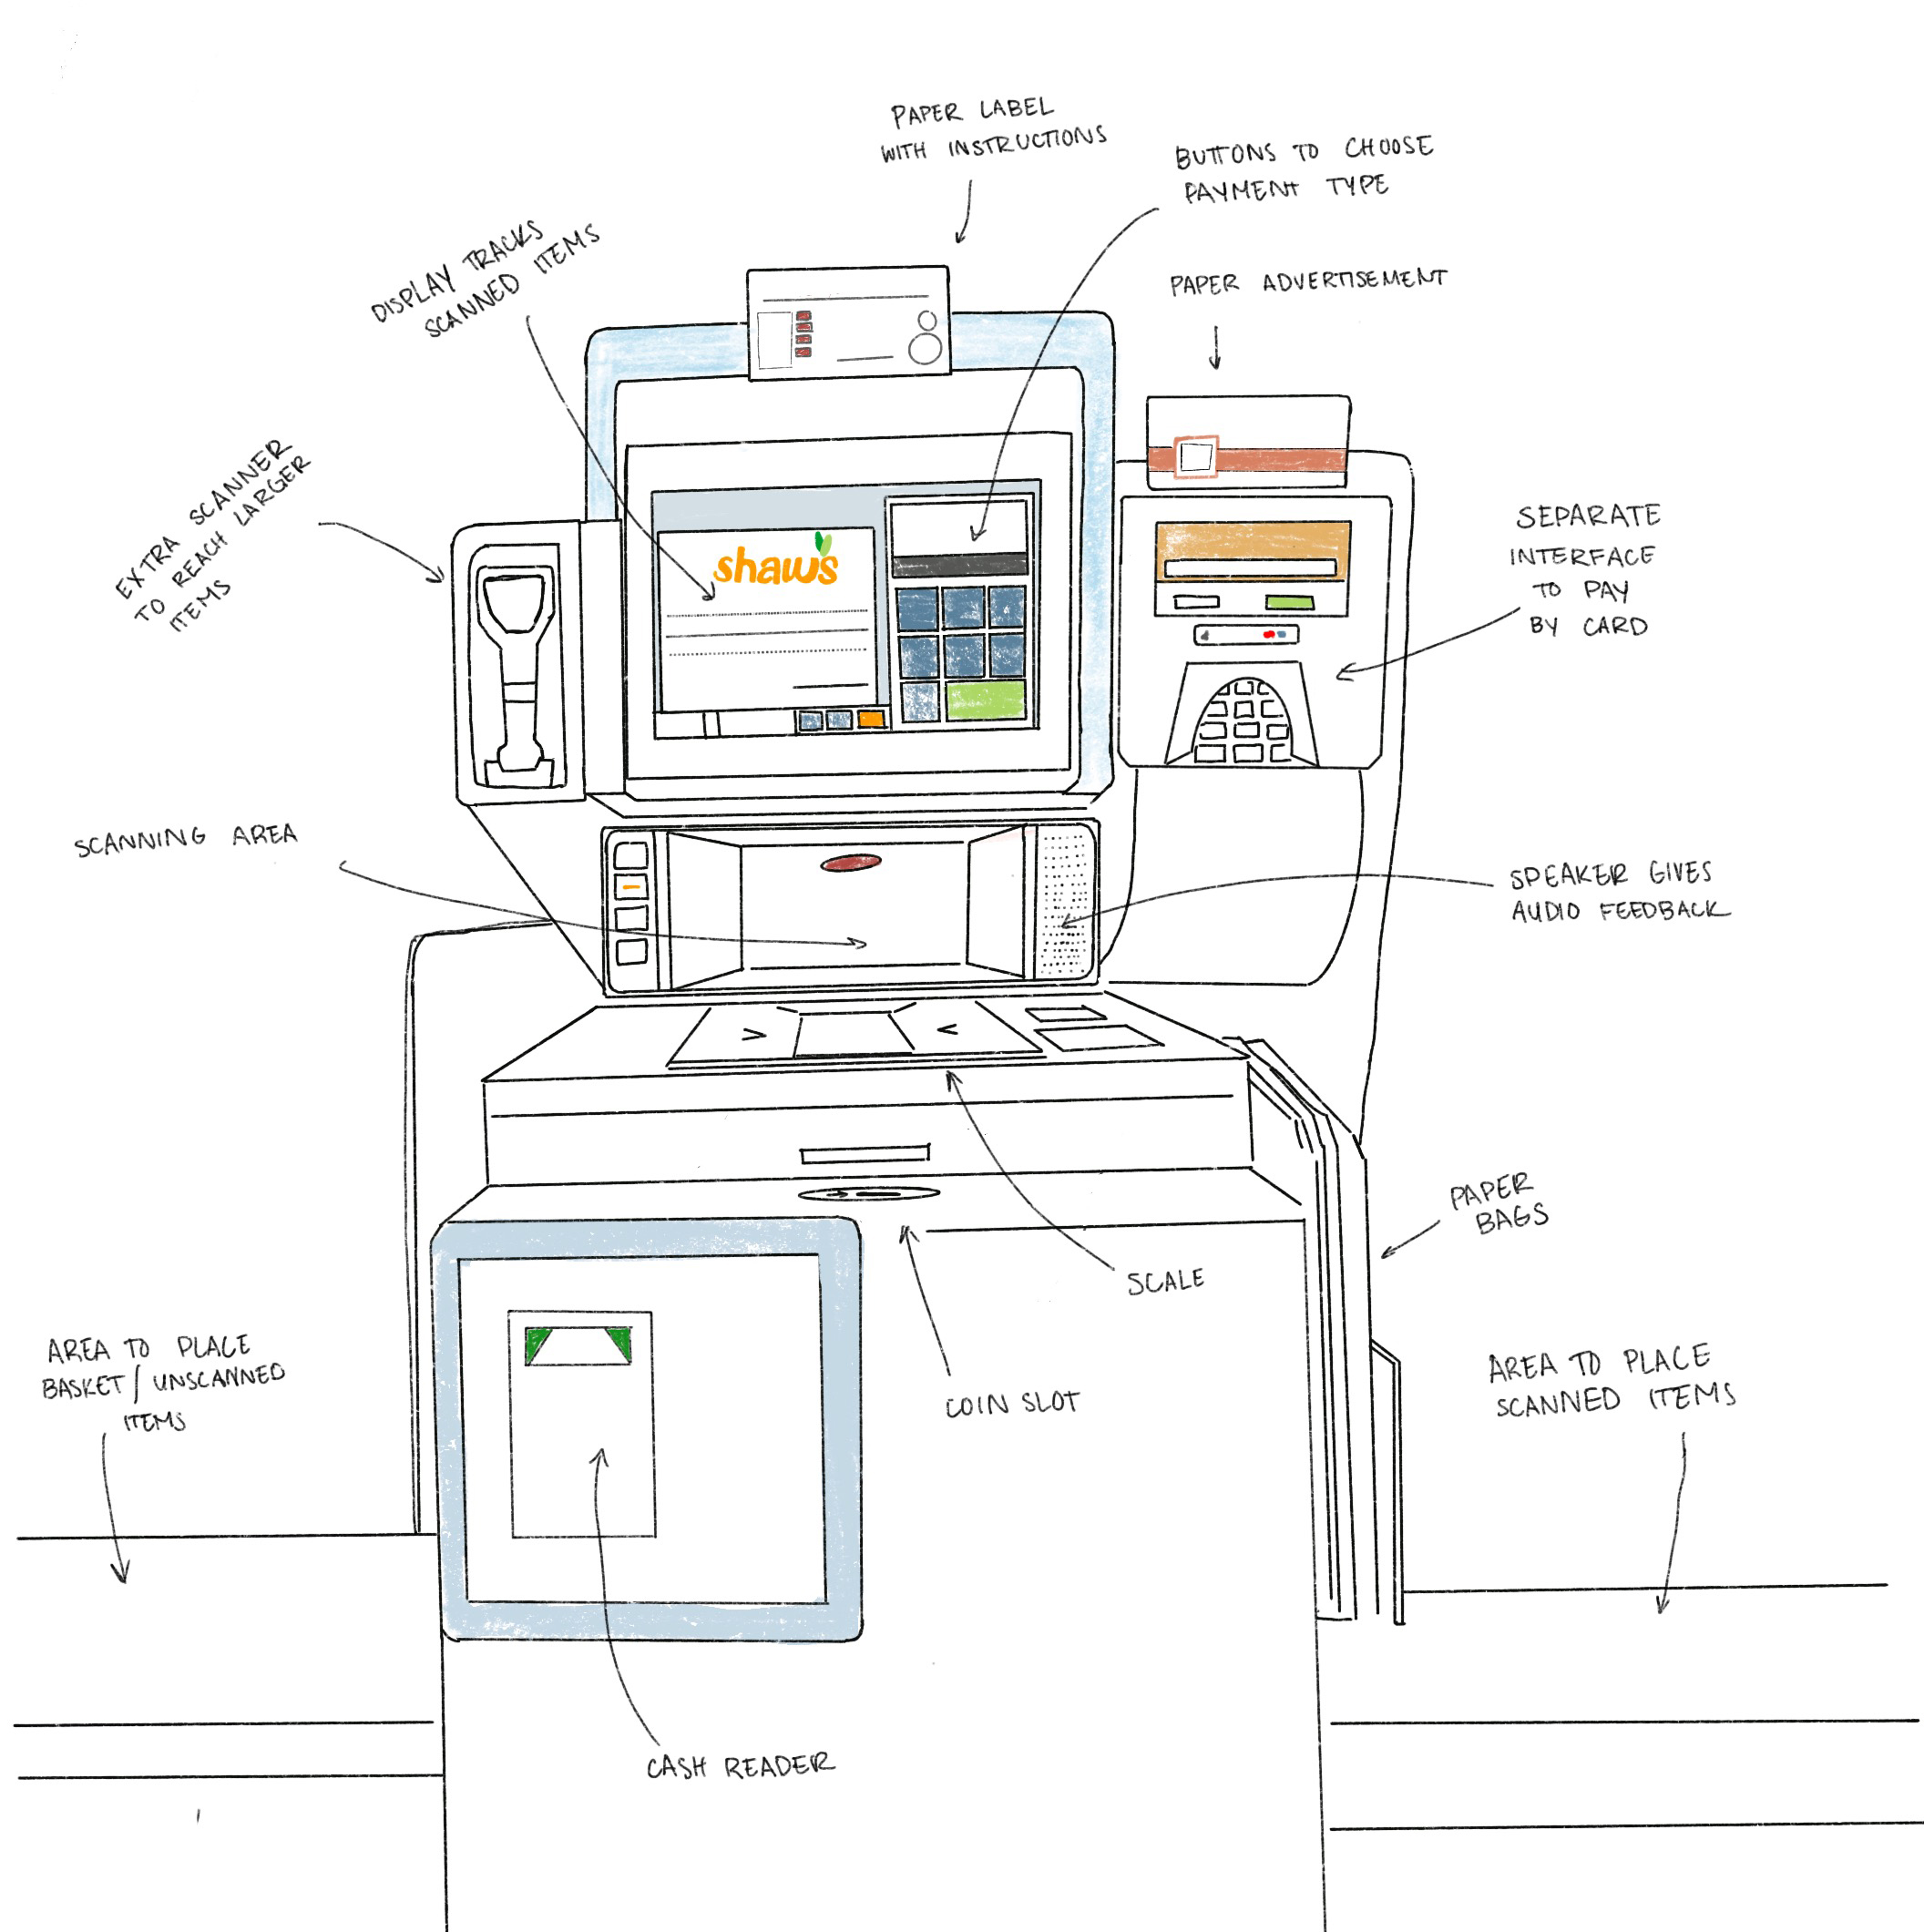 PAPER LABEL
WITH INSTRUCTIONS
BUTTONS TO CHOOSE
PAYMENT TYPE
DISPLAY TRACKS
SCANNED ITEMS
PAPER ADVERTISEMENT
EXTRA SCANNER
TO REACH LARGER
ITEMS
SEPARATE
INTERFACE
TO PAY
BY CARD
shaw's
SCANNING AREA
SPEAKER GIVES
AUDIO FEEDBACK
> <
PAPER
BAGS
SCALE
AREA TO PLACE
BASKET / UNSCANNED
ITEMS
COIN SLOT
AREA TO PLACE
SCANNED ITEMS
CASH READER